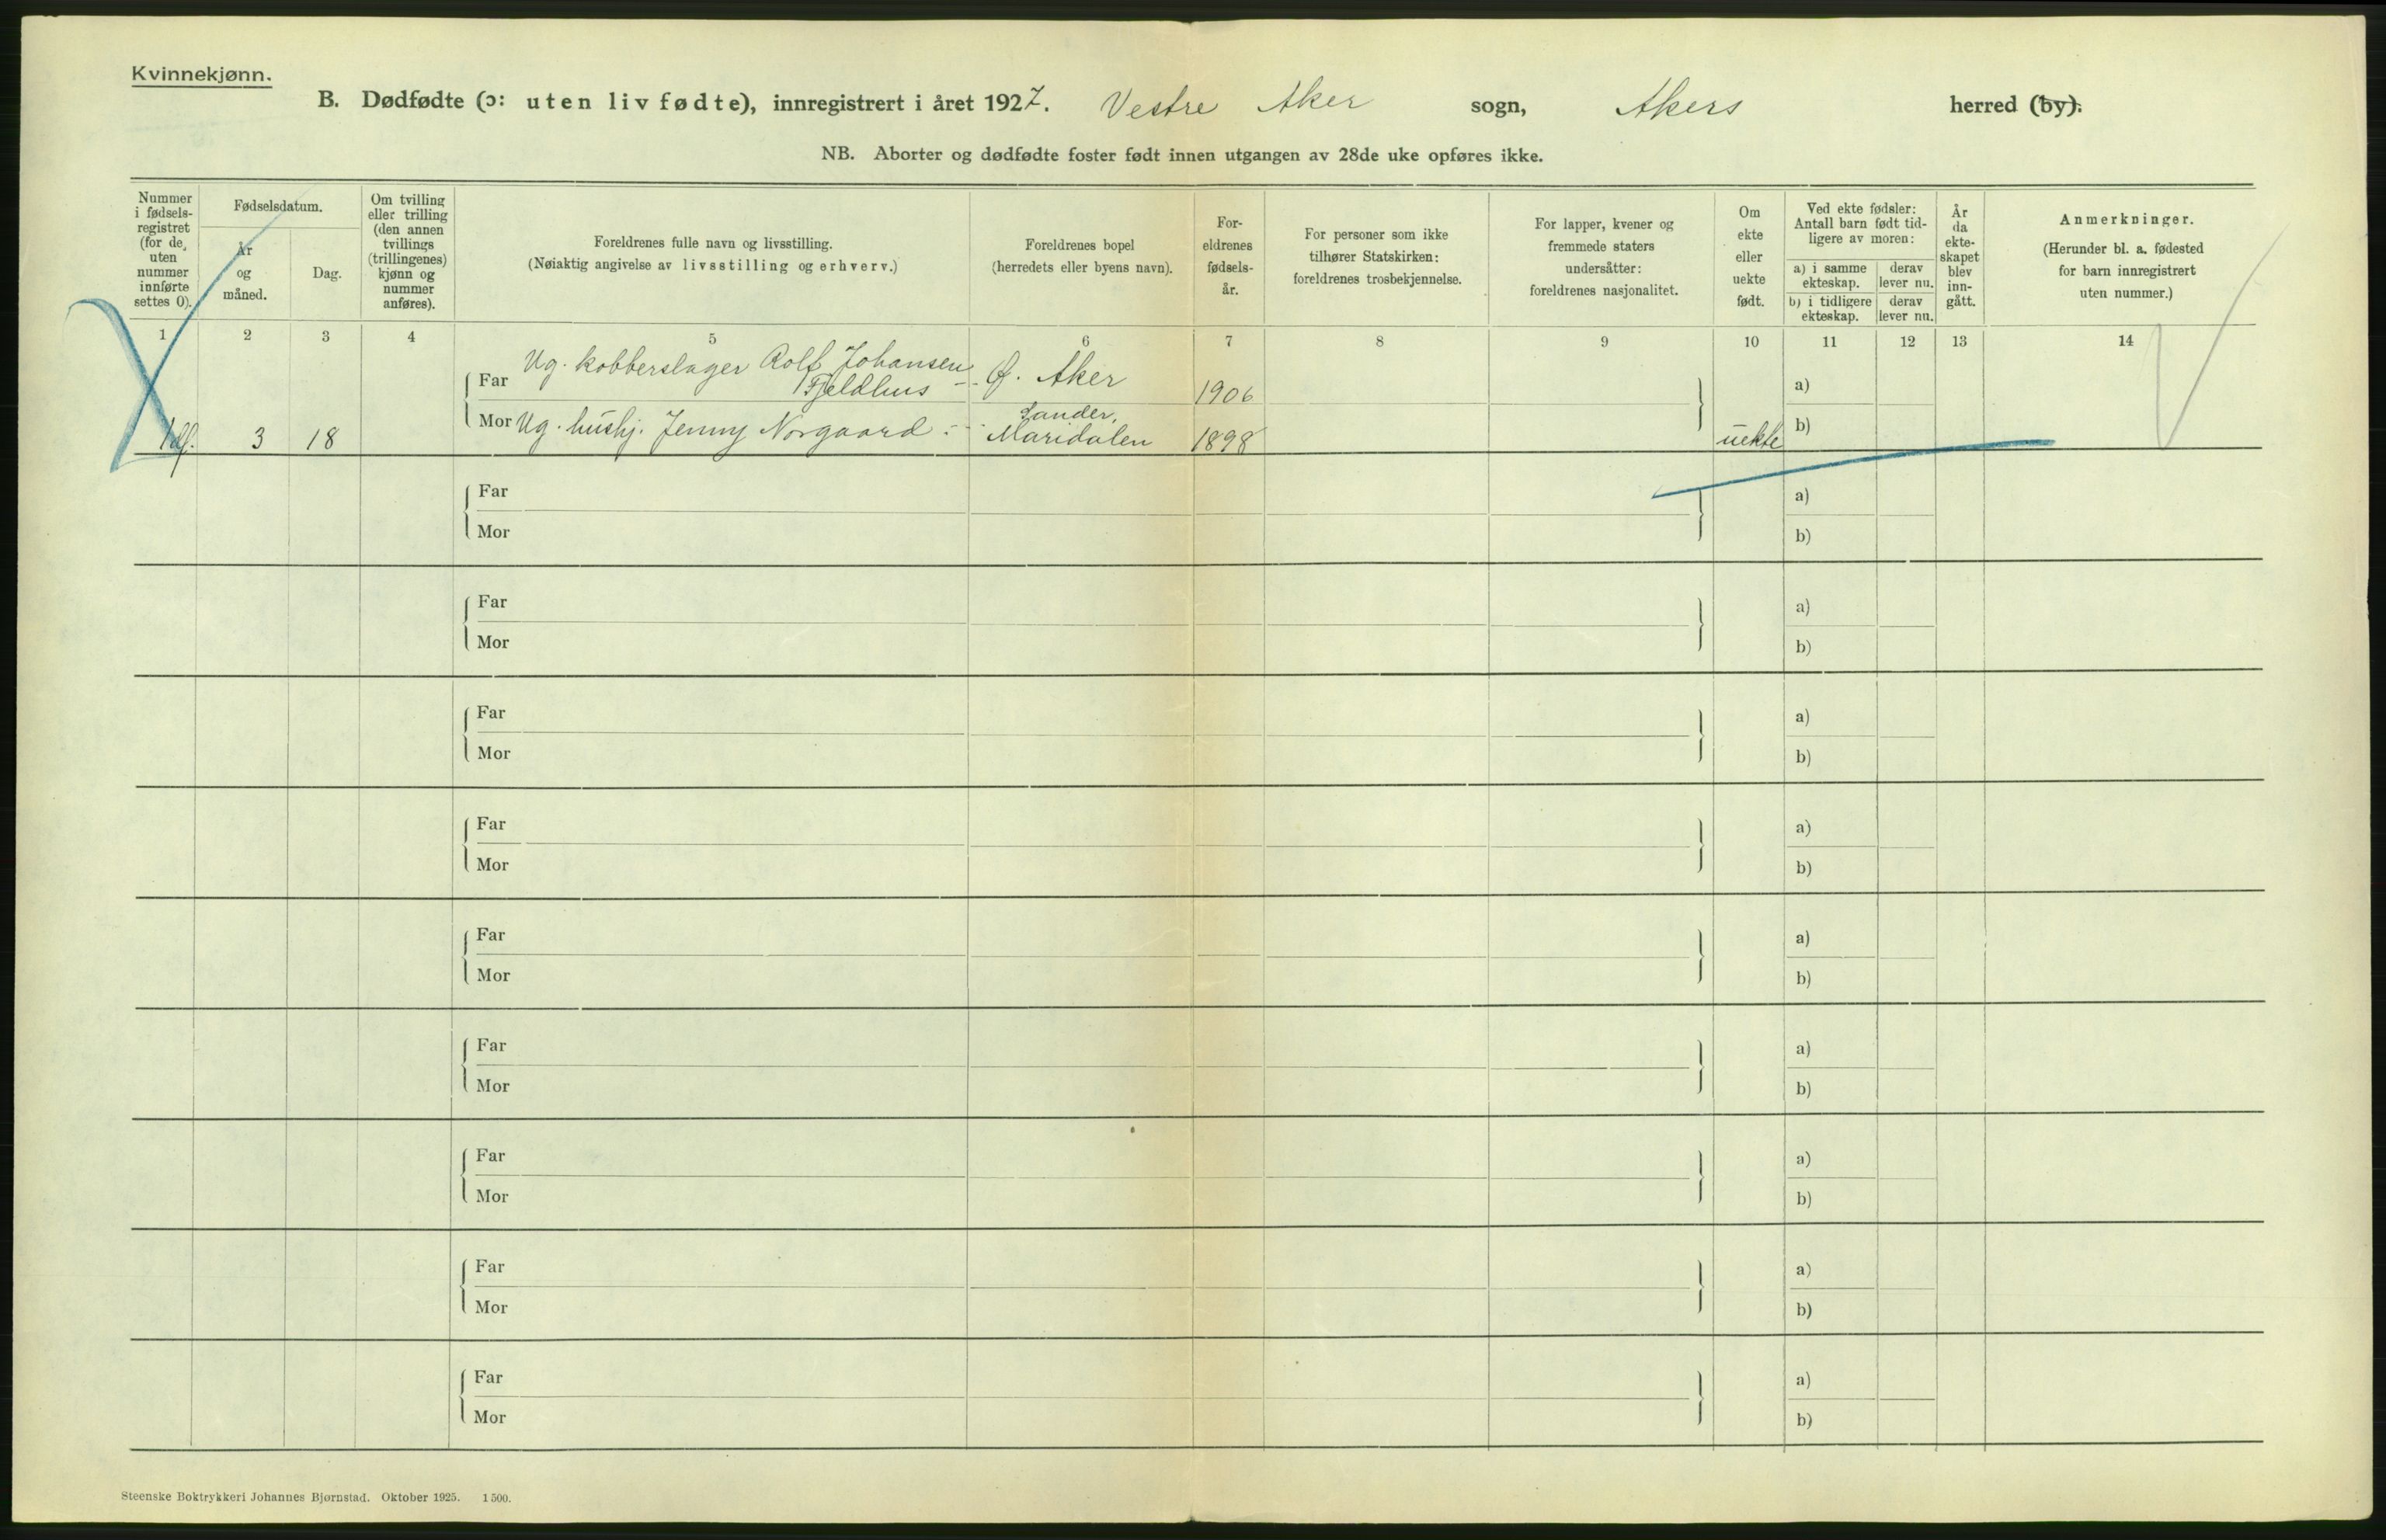 Kvinnekjønn.
B. Dødfødte (ɔ: uten liv fødte), innregistrert i året 1927. Vestre Aker sogn, Akers herred (by).
NB. Aborter og dødfødte foster født innen utgangen av 28de uke opføres ikke.
Nummer i fødsels-registret (for de uten nummer innførte settes 0).
Fødselsdatum.
År og måned.
Dag.
Om tvilling eller trilling (den annen tvillings (trillingenes) kjønn og nummer anføres).
Foreldrenes fulle navn og livsstilling.
(Nøiaktig angivelse av livsstilling og erhverv.)
Foreldrenes bopel
(herredets eller byens navn).
For-eldrenes fødsels-år.
For personer som ikke tilhører Statskirken: foreldrenes trosbekjennelse.
For lapper, kvener og fremmede staters undersåtter: foreldrenes nasjonalitet.
Om ekte eller uekte født.
Ved ekte fødsler: Antall barn født tid-ligere av moren:
a) i samme ekteskap.
derav lever nu.
b) i tidligere ekteskap.
derav lever nu.
År da ekte-skapet blev inn-gått.
Anmerkninger.
(Herunder bl. a. fødested for barn innregistrert uten nummer.)
1 2 3 4 5 6 7 8 9 10 11 12 13 14
Far Ug. kobberslager Rolf Johansen
Fjeldhus Ø. Aker 1906 a)
Sander,
1 df. 3 18 Mor Ug. hushj. Jenny Norgaard Maridalen 1898 uekte b)
Far a)
Mor b)
Far a)
Mor b)
Far a)
Mor b)
Far a)
Mor b)
Far a)
Mor b)
Far a)
Mor b)
Far a)
Mor b)
Far a)
Mor b)
Far a)
Mor b)
Steenske Boktrykkeri Johannes Bjørnstad. Oktober 1925. 1500.